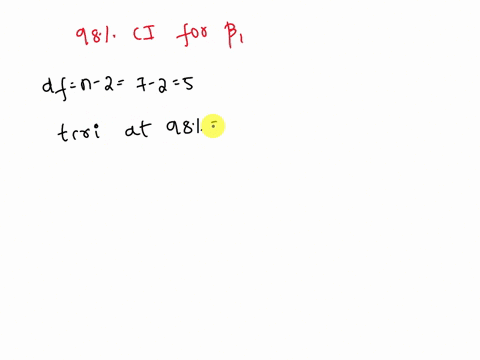 98%. CI for β1
df=n-2= 7-2=5
tcri at 98%=